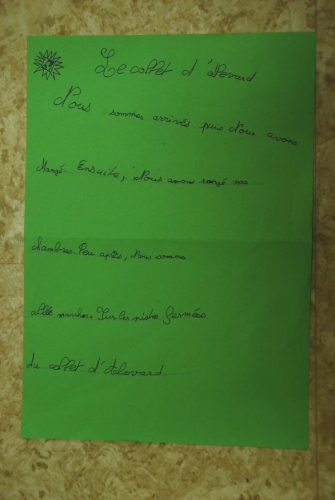 Le collet d'allevard
Nous sommes arrivés puis Nous avons
Mangé. Ensuite, Nous avons rangé nos
chambres. Peu après, Nous sommes
allé marcher Sur les pistes fermées
du collet d'Allevard.